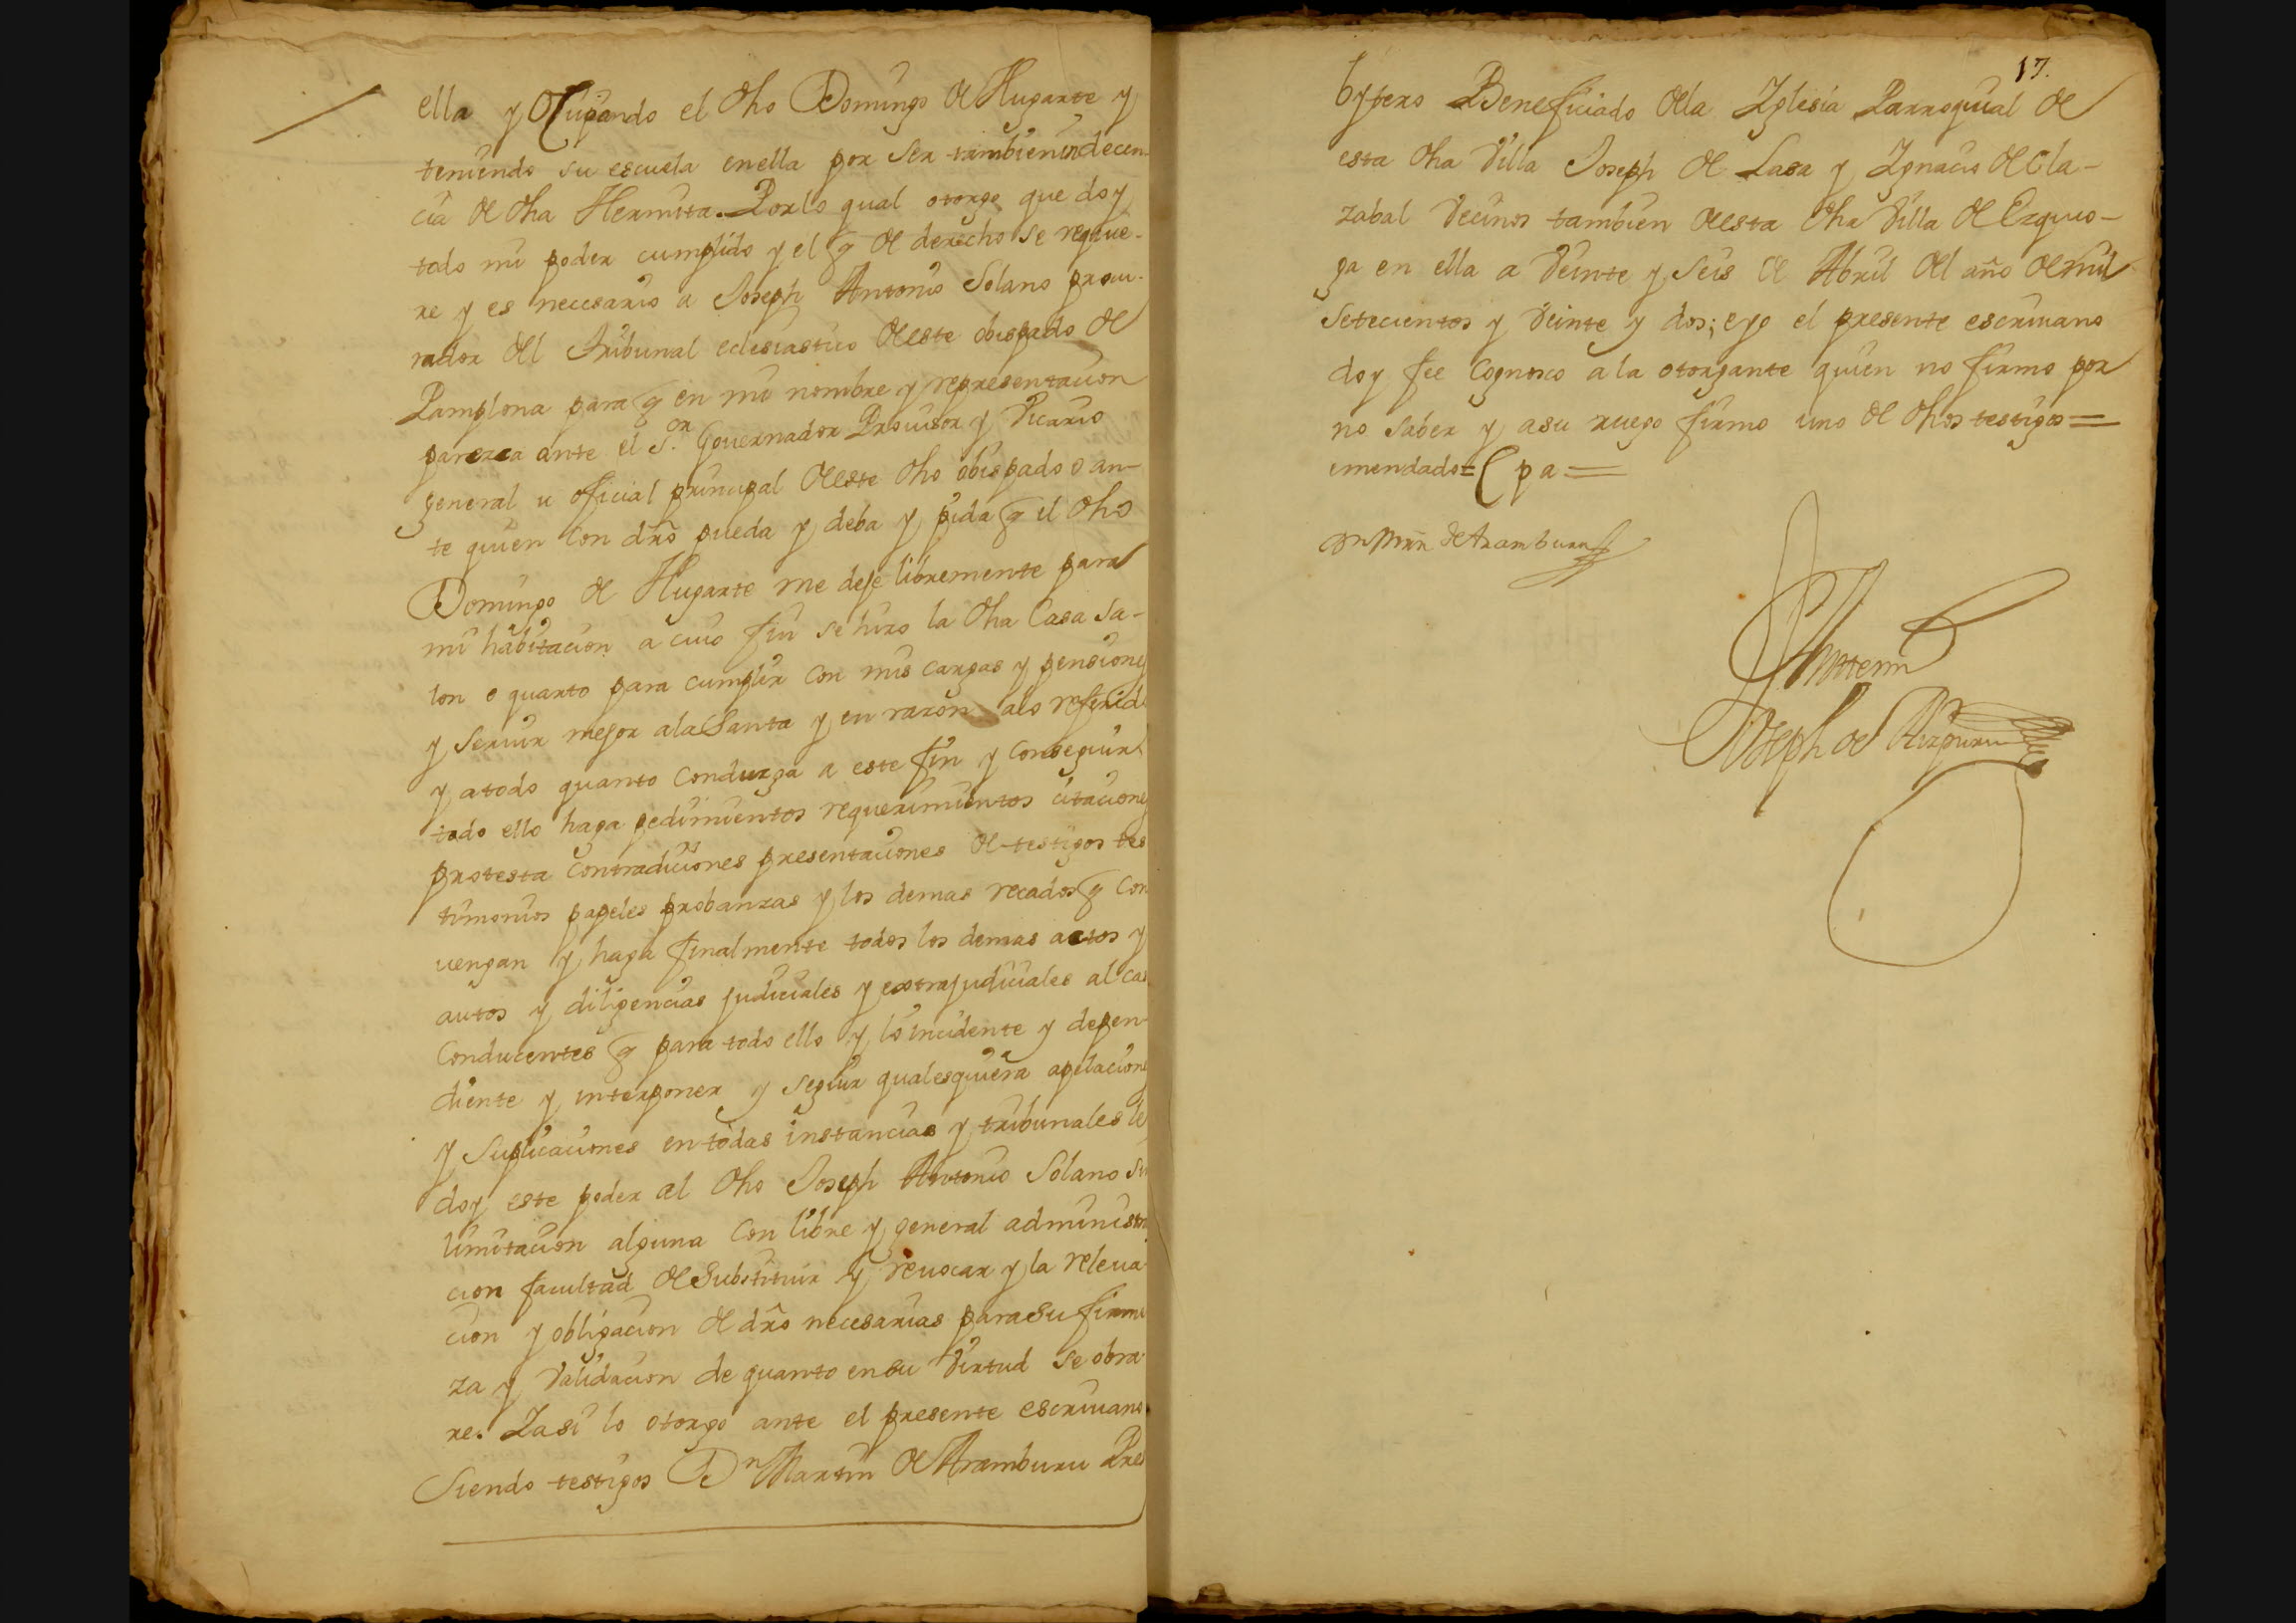 ella y Ocupando el dho Domingo de Hugarte y
teniendo su escuela en ella por ser tambien indecen-
cia de dha Hermita. Por lo qual otorgo que doy
todo mi poder cumplido y el q de derecho se requie-
re y es necesario a Joseph Antonio Solano procu-
rador del Tribunal eclesiastico de este obispado de
Pamplona para q en mi nombre y representacion
parezca ante el S.or Governador Provisor y Vicario
general u oficial principal de este dho obispado o an-
te quien con dro pueda y deba y pida q el dho
Domingo de Hugarte me deje libremente para
mi habitacion a cuio fin se hizo la dha Casa Sa-
lon o quarto para cumplir con mis cargas y pensiones
y servir mejor a la Santa y en razon a lo referido
y a todo quanto conduzga a este fin y conseguir
todo ello haga pedimientos requerimientos citaciones
protesta contradiciones presentaciones de testigos tes
timonios papeles probanzas y los demas recados q con
vengan y haga finalmente todos los demas actos y
autos y diligencias judiciales y extrajudiciales al caso
conducentes q para todo ello y lo incidente y depen-
diente y interponer y seguir qualesquiera apelaciones
y suplicaciones en todas instancias y tribunales le
doy este poder al dho Joseph Antonio Solano sin
limitacion alguna con libre y general administra
cion facultad de substituir y revocar y la releva-
cion y obligacion de dro necesarias para su firme
za y validacion de quanto en su virtud se obra-
re. Y asi lo otorgo ante el presente escrivano
Siendo testigos Dn Martin de Aramburu Pres
17.
bytero Beneficiado de la Yglesia Parroquial de
esta dha Villa Joseph de Lasa y Ygnacio de Ola-
zabal vecinos tambien de esta dha Villa de Ezquio-
ga en ella a veinte y seis de Abril del año de mil
setecientos y veinte y dos; e yo el presente escrivano
doy fee cognosco a la otorgante quien no firmo por
no saber y a su ruego firmo uno de dhos testigos =
emendado = C pa =
Dn Mrn de Aramburu
Ante mi
Joseph de Aizpuru